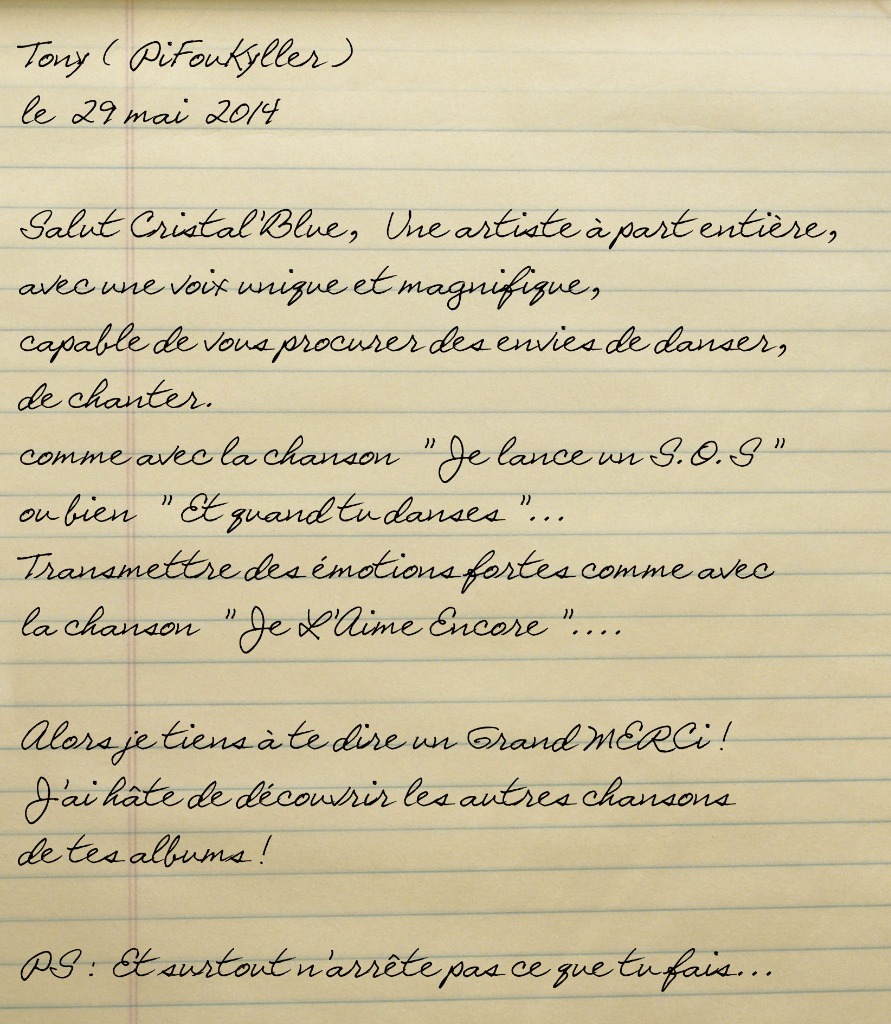 Tony ( PiFouKyller )
le 29 mai 2014
Salut Cristal'Blue, Une artiste à part entière,
avec une voix unique et magnifique,
capable de vous procurer des envies de danser,
de chanter.
comme avec la chanson " Je lance un S.O.S "
ou bien " Et quand tu danses "...
Transmettre des émotions fortes comme avec
la chanson " Je L'Aime Encore "....
Alors je tiens à te dire un Grand MERCi !
J'ai hâte de découvrir les autres chansons
de tes albums !
PS : Et surtout n'arrête pas ce que tu fais...